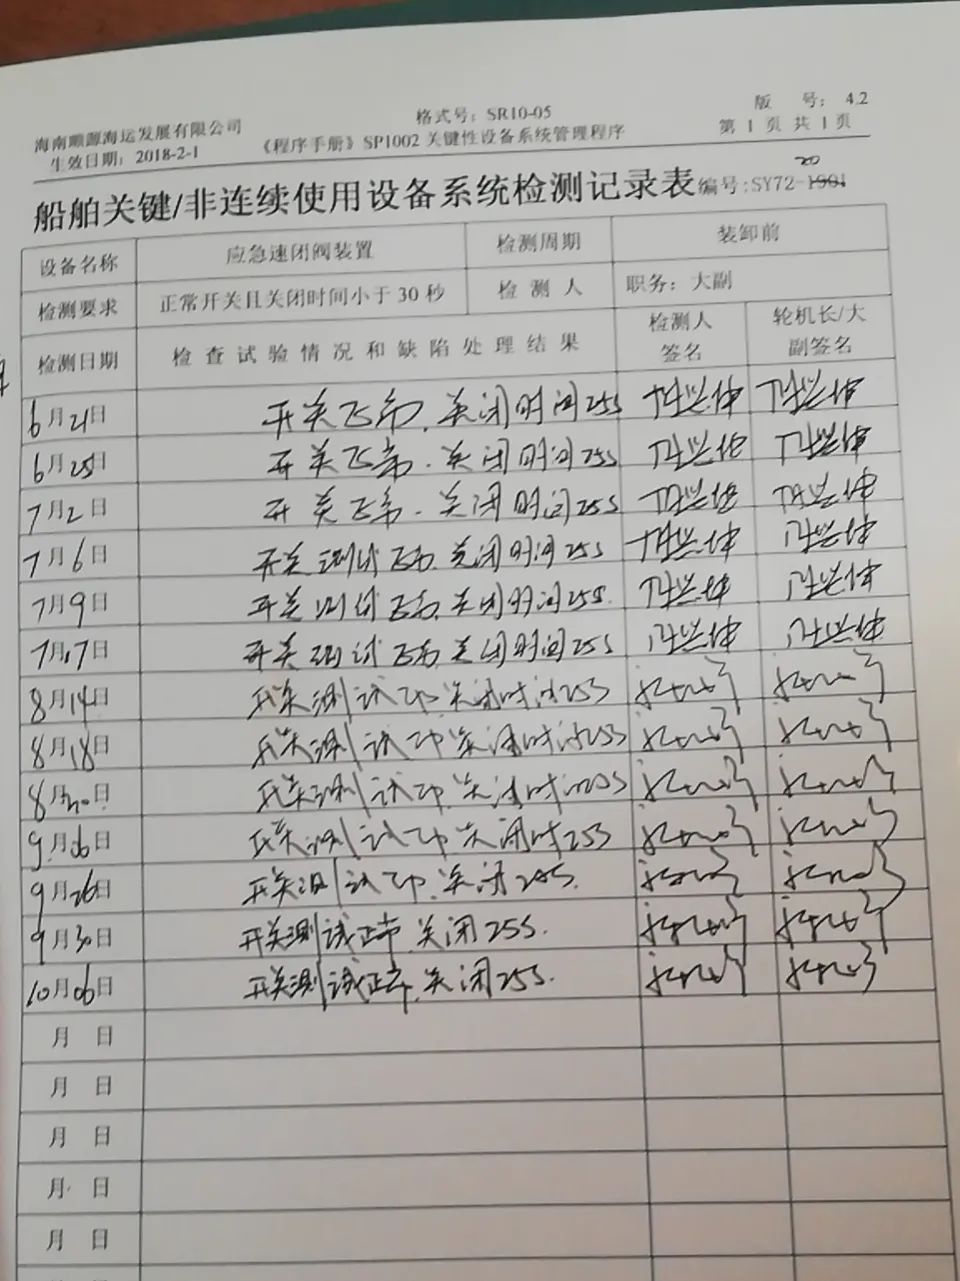 海南顺源海运发展有限公司 格式号：SR10-05 版 号：4.2
生效日期：2018-2-1 《程序手册》SP1002 关键性设备系统管理程序 第 1 页 共 1 页
船舶关键/非连续使用设备系统检测记录表 编号:SY72-1901 20
设备名称 应急速闭阀装置 检测周期 装卸前
检测要求 正常开关且关闭时间小于 30 秒 检 测 人 职务：大副
检测日期 检 查 试 验 情 况 和 缺 陷 处 理 结 果 检测人签名 轮机长/大副签名
6月21日 开关正常．关闭时间25S
6月25日 开关正常．关闭时间25S
7月2日 开关正常．关闭时间25S
7月6日 开关测试正常．关闭时间25S
7月9日 开关测试正常．关闭时间25S
7月17日 开关测试正常．关闭时间25S
8月14日 开关测试正常．关闭时间25S
8月18日 开关测试正常．关闭时间25S
8月20日 开关测试正常．关闭时间25S
9月06日 开关测试正常 关闭时25S
9月26日 开关测试正常．关闭25S．
9月30日 开关测试正常．关闭25S．
10月06日 开关测试正常．关闭25S．
月 日
月 日
月 日
月 日
月 日